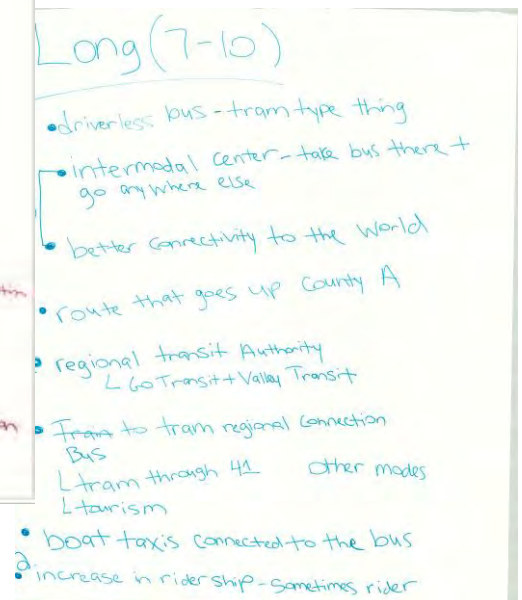 Long (7-10)
• driverless bus - tram type thing
• intermodal center - take bus there +
go anywhere else
• better connectivity to the world
• route that goes up County A
• regional transit Authority
L Go Transit + Valley Transit
• Tram to tram regional connection
Bus
L tram through 41 other modes
L tourism
• boat taxis connected to the bus
• increase in ridership - sometimes rider